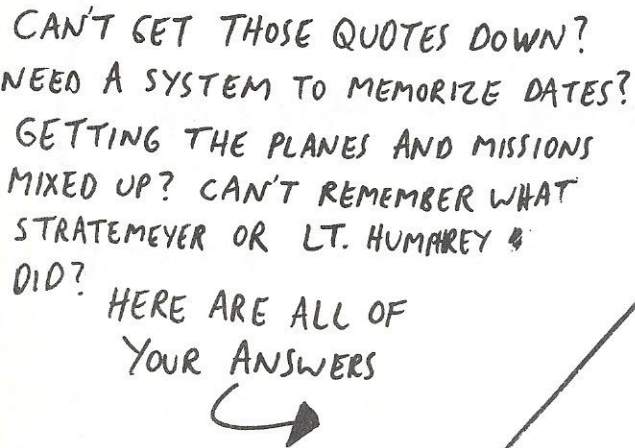 CAN'T GET THOSE QUOTES DOWN?
NEED A SYSTEM TO MEMORIZE DATES?
GETTING THE PLANES AND MISSIONS
MIXED UP? CAN'T REMEMBER WHAT
STRATEMEYER OR LT. HUMPHREY
DID?
HERE ARE ALL OF
YOUR ANSWERS